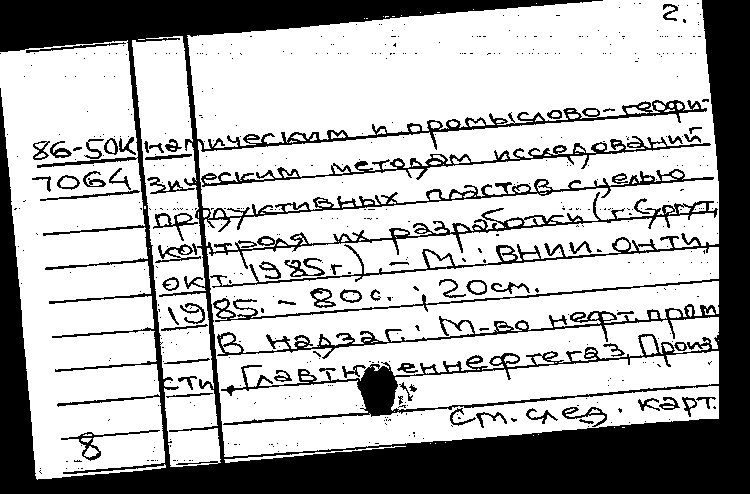 2.
86-50К намическим и промыслово-геофи-
7064 зическим методам исследований
продуктивных пластов с целью
контроля их разработки (г. Сургут,
окт. 1985г.). - М.: ВНИИ. ОНТИ,
1985. - 80с. ; 20см.
В надзаг.: М-во нефт. пром
сти, Главтюменнефтегаз, Произ
8 см. след. карт.